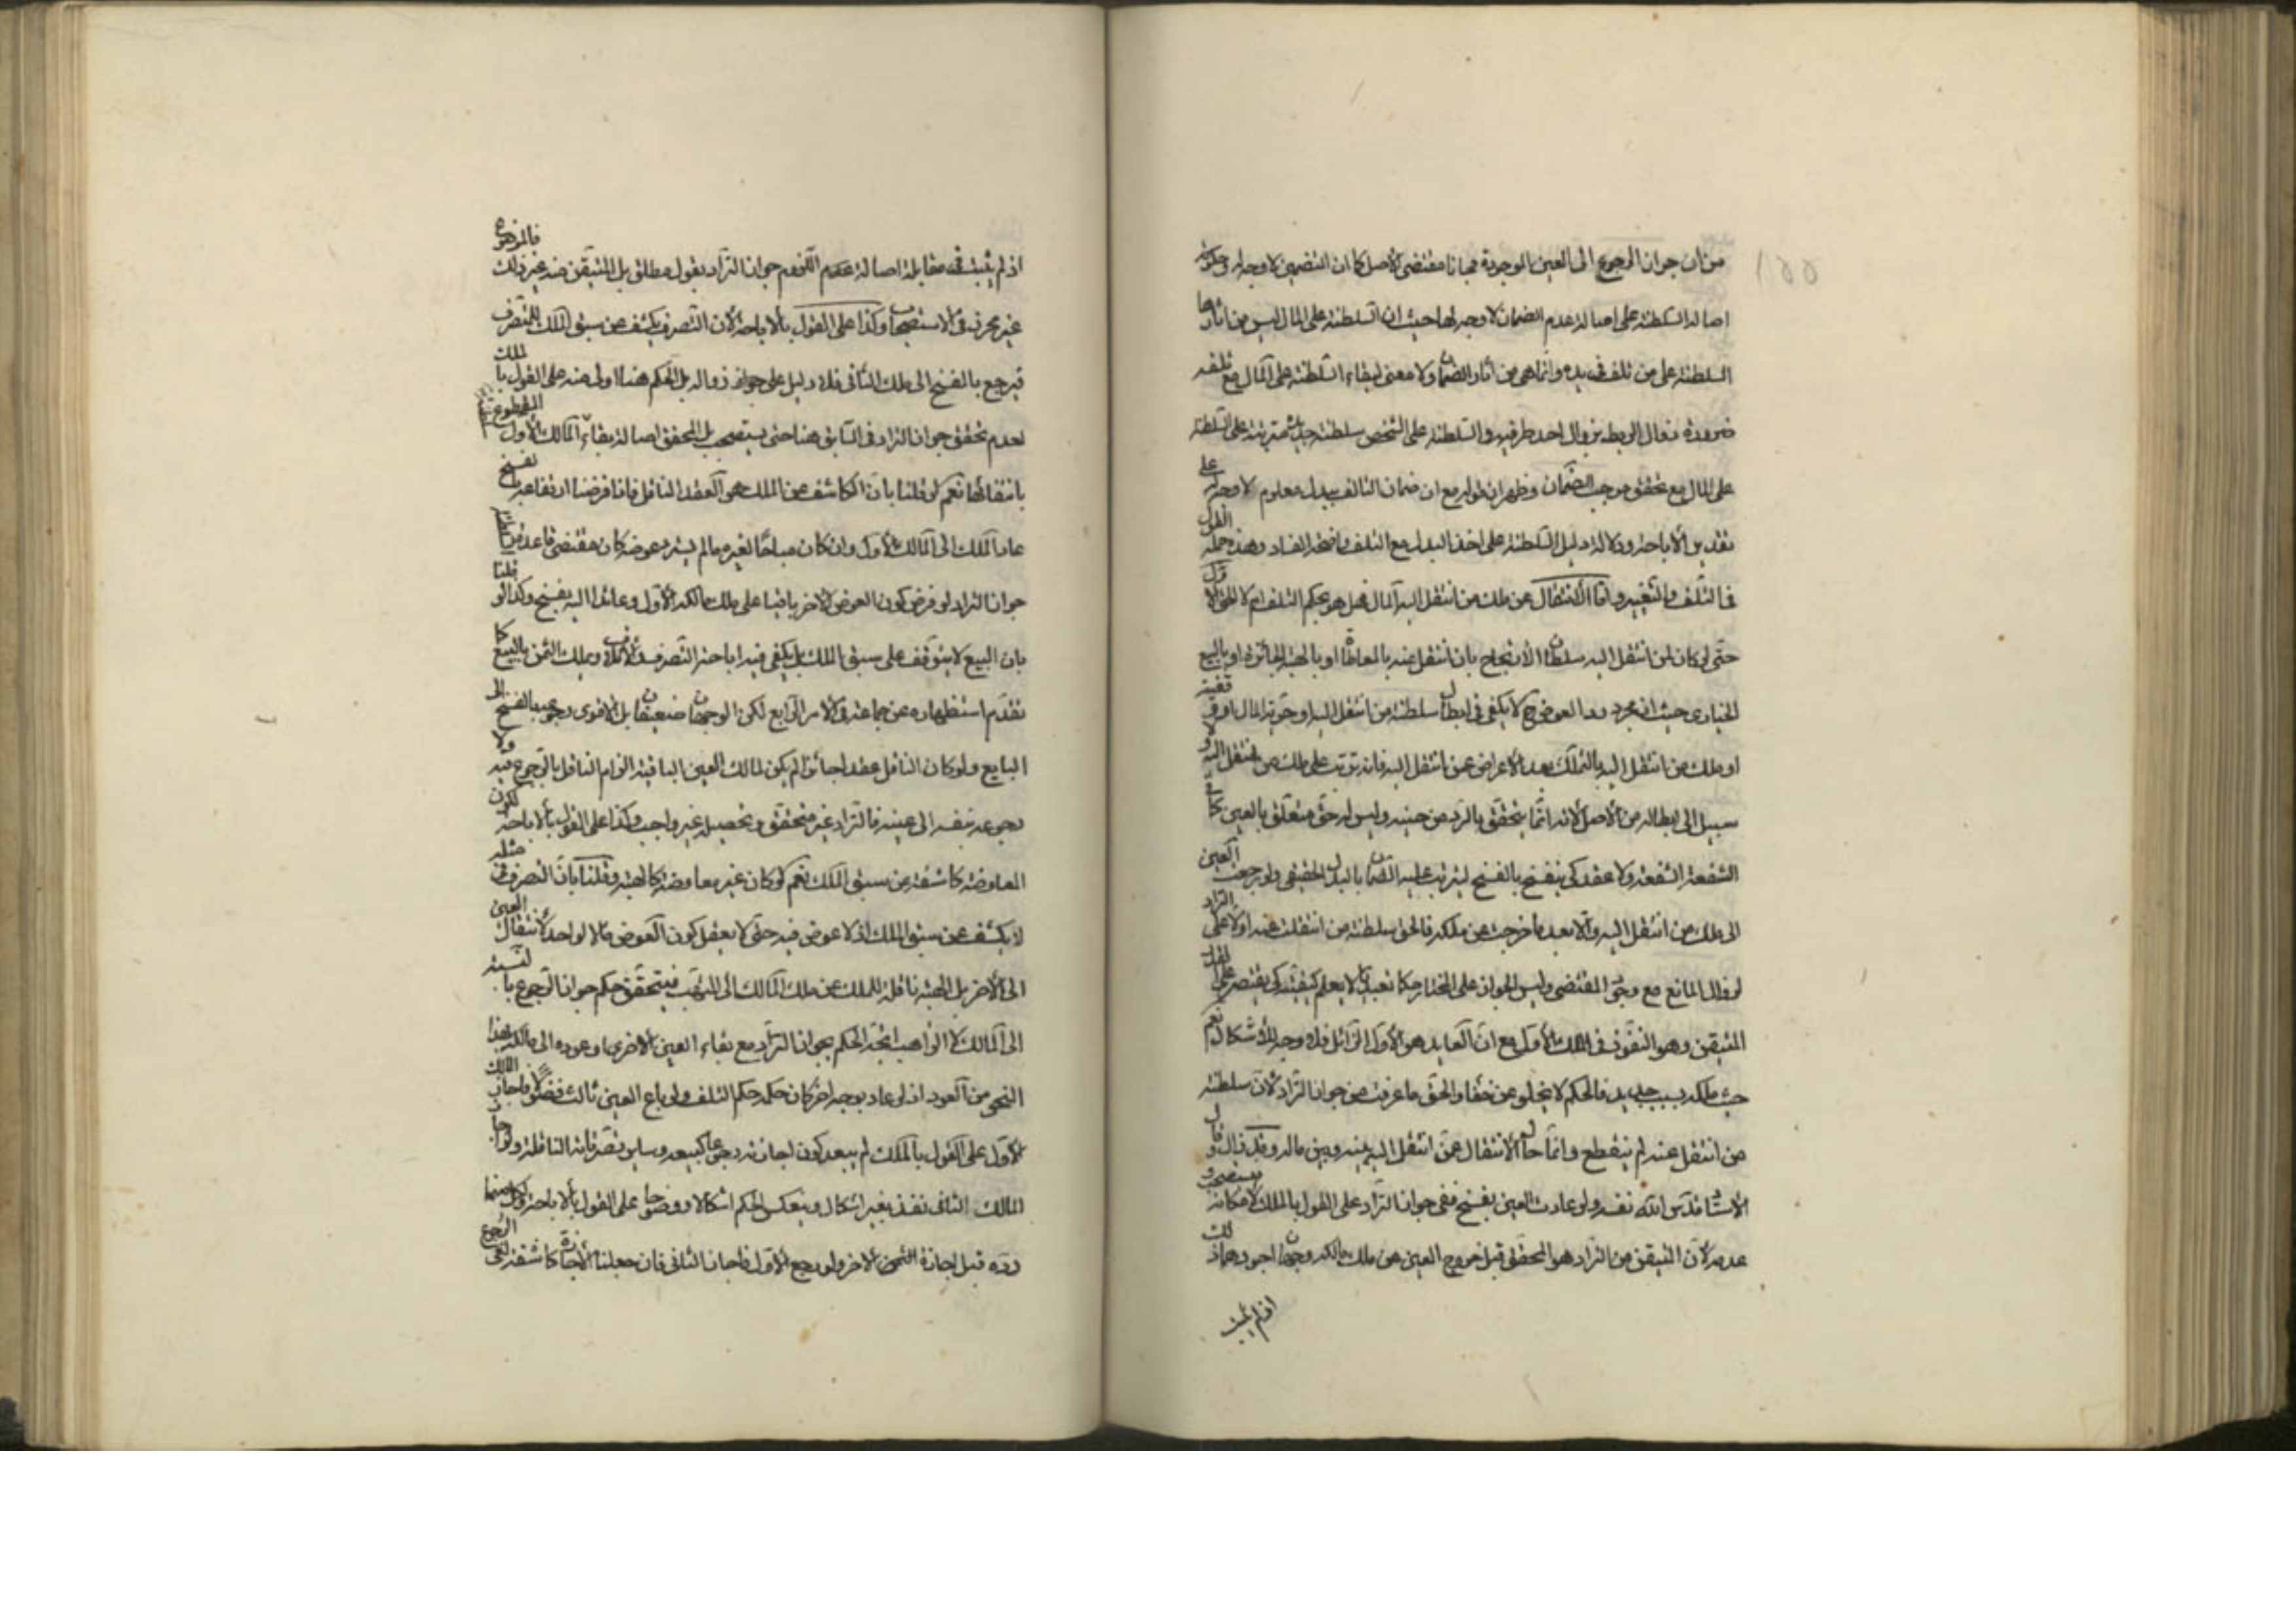 ١٥٥
من ان جواز الرجوع الى العين الموجودة مجانا مقتضى الاصل كما ان التضمين لا وجه له وحكومة
اصالة السلطنة على اصالة عدم الضمان لا وجه لها حيث ان السلطنة على المال ليس من اثارها
السلطنة على من تلف في يده وانما هي من اثار الضمان ولا معنى لبقاء السلطنة على المال مع تلفه
ضرورة زوال الربط بزوال احد طرفيه والسلطنة على الشخص سلطنة جديدة مترتبة على السلطنة
على المال مع تحقق موجب الضمان وظهر ان قوله مع ان ضمان التالف ببدله معلوم لا وجه له على
تقدير الاباحة ودلالة دليل السلطنة على اخذ البدل مع التلف واضحة الفساد وهذه جملة القول
في التلف والتغيير واما الانتقال عن ملك من انتقل اليه المال فهل هو بحكم التلف ام لا الحق الاول
حتى لو كان لمن انتقل اليه سلطان الارتجاع بان انتقل عنه بالمعاطاة او بالهبة الجائزة او بالبيع
الخيارى حيث ان مجرد رد العوض ح لا يكفي في ابطال سلطنة من انتقل اليه او حقية المال او رقبته
او ملك من انتقل اليه بالتملك بعد الاعراض عمن انتقل اليه فانه ترتب على ملك من انتقل اليه ولا
سبيل الى ابطاله من الاصل لانه انما يتحقق بالرد من حينه وليس له حق متعلق بالعين كما في
الشفعة ولا عقد كى ينفسخ بالفسخ ليترتب عليه الضمان بالبدل الحقيقى ولو رجعت العين
الى ملك من انتقل اليه والا بعد ما خرجت من ملكه فالحق سلطنة من انتقلت عنه اولا على التراد
لزوال المانع مع وجود المقتضى وليس الجواز على المختار حكما تعبديا لا يعلم كيفيته كى يقتصر على القدر
المتيقن وهو النفوذ في الملك الاول مع ان العايد هو الاول الزائل فلا وجه للاشكال نعم
حيث ملكه بسبب جديد فالحكم لا يخلو عن خفاء والحق ما عرفت من جواز التراد لان سلطنة
من انتقل عنه لم ينقطع وانما حال الانتقال عمن انتقل اليه بينه وبين ماله وقد زال وقال
الاستاد قدس الله نفسه ولو عادت العين بفسخ ففى جواز التراد على القول بالملك لامكانه فيستصحب و
عدمه لان المتيقن من التراد هو المحقق قبل خروج العين عن ملك مالكه وجهان اجودهما ذلك
اذ لم يثبت
اذ لم يثبت في مقابلة اصالة عدم اللزوم جواز التراد بقول مطلق بل المتيقن منه غير ذلك فالموضوع
غير محرز في الاستصحاب وكذا على القول بالاباحة لان التصرف يكشف عن سبق الملك للمتصرف
فيرجع بالفسخ الى ملك الثانى فلا دليل على جواز زواله بل الحكم هنا اولى منه على القول بالملك
لعدم تحقق جواز التراد في السابق هنا حتى يستصحب بل المحقق اصالة بقاء المالك الاول المقطوع
بانتفائها نعم لو قلنا بان الكاشف عن الملك هو العقد الناقل فاذا فرضنا ارتفاعه بالفسخ
عاد الملك الى المالك الاول وان كان مباحا لغيره ما لم يسترد عوضه كان مقتضى قاعدة
جواز التراد لو فرض كون العوض الاخر باقيا على ملك مالكه الاول وعائدا اليه بفسخ وكذا لو قلنا
بان البيع لا يتوقف على سبق الملك بل يكفي فيه اباحة التصرف والاتلاف ويملك الثمن بالبيع كما
تقدم استظهاره عن جماعة في الامر الرابع لكن الوجهان ضعيفان بل الاقوى رجوعه بالفسخ الى
البايع ولو كان الناقل عقدا جائزا لم يكن لمالك العين الباقية الزام الناقل بالرجوع فيه ولا
رجوعه بنفسه الى عينه فالتراد غير متحقق وتحصيله غير واجب وكذا على القول بالاباحة لكون
المعاوضة كاشفة عن سبق الملك نعم لو كان غير معاوضة كالهبة وقلنا بان التصرف في مثله
لا يكشف عن سبق الملك اذ لا عوض فيه حتى لا يعقل كون العوض مالا لواحد وانتقال العين
الى الاخر بل الهبة ناقلة للملك عن ملك المالك الى المتهب فيتحقق حكم جواز الرجوع بالنسبة
الى المالك لا الواهب اتجه الحكم بجواز التراد مع بقاء العين الاخرى او عوده الى مالكه بهذا
النحو من العود اذ لو عاد بوجه اخر كان حكمه حكم التلف ولو باع العين ثالث فضولا فاجاز المالك
الاول على القول بالملك لم يبعد كون اجازته رجوعا كبيعه وساير تصرفاته الناقلة ولو اجاز
المالك الثانى نفذ بغير اشكال وينعكس الحكم اشكالا ووضوحا على القول بالاباحة ولكل منهما
رده قبل اجازة الاخر ولو رجع الاول فاجاز الثانى فان جعلنا الاجازة كاشفة لغى الرجوع